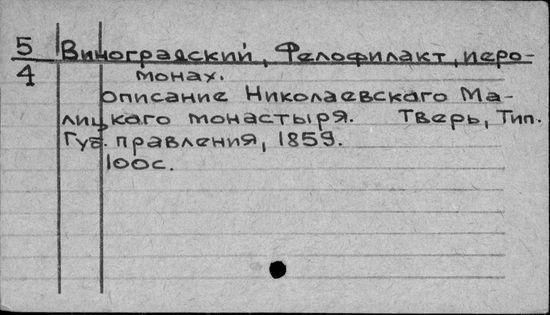 5 Виноградский, Фелофилакт, иеро-
4 монах.
Описание Николаевского Ма-
лицкого монастыря. Тверь, Тип.
Губ. правления, 1859.
100с.